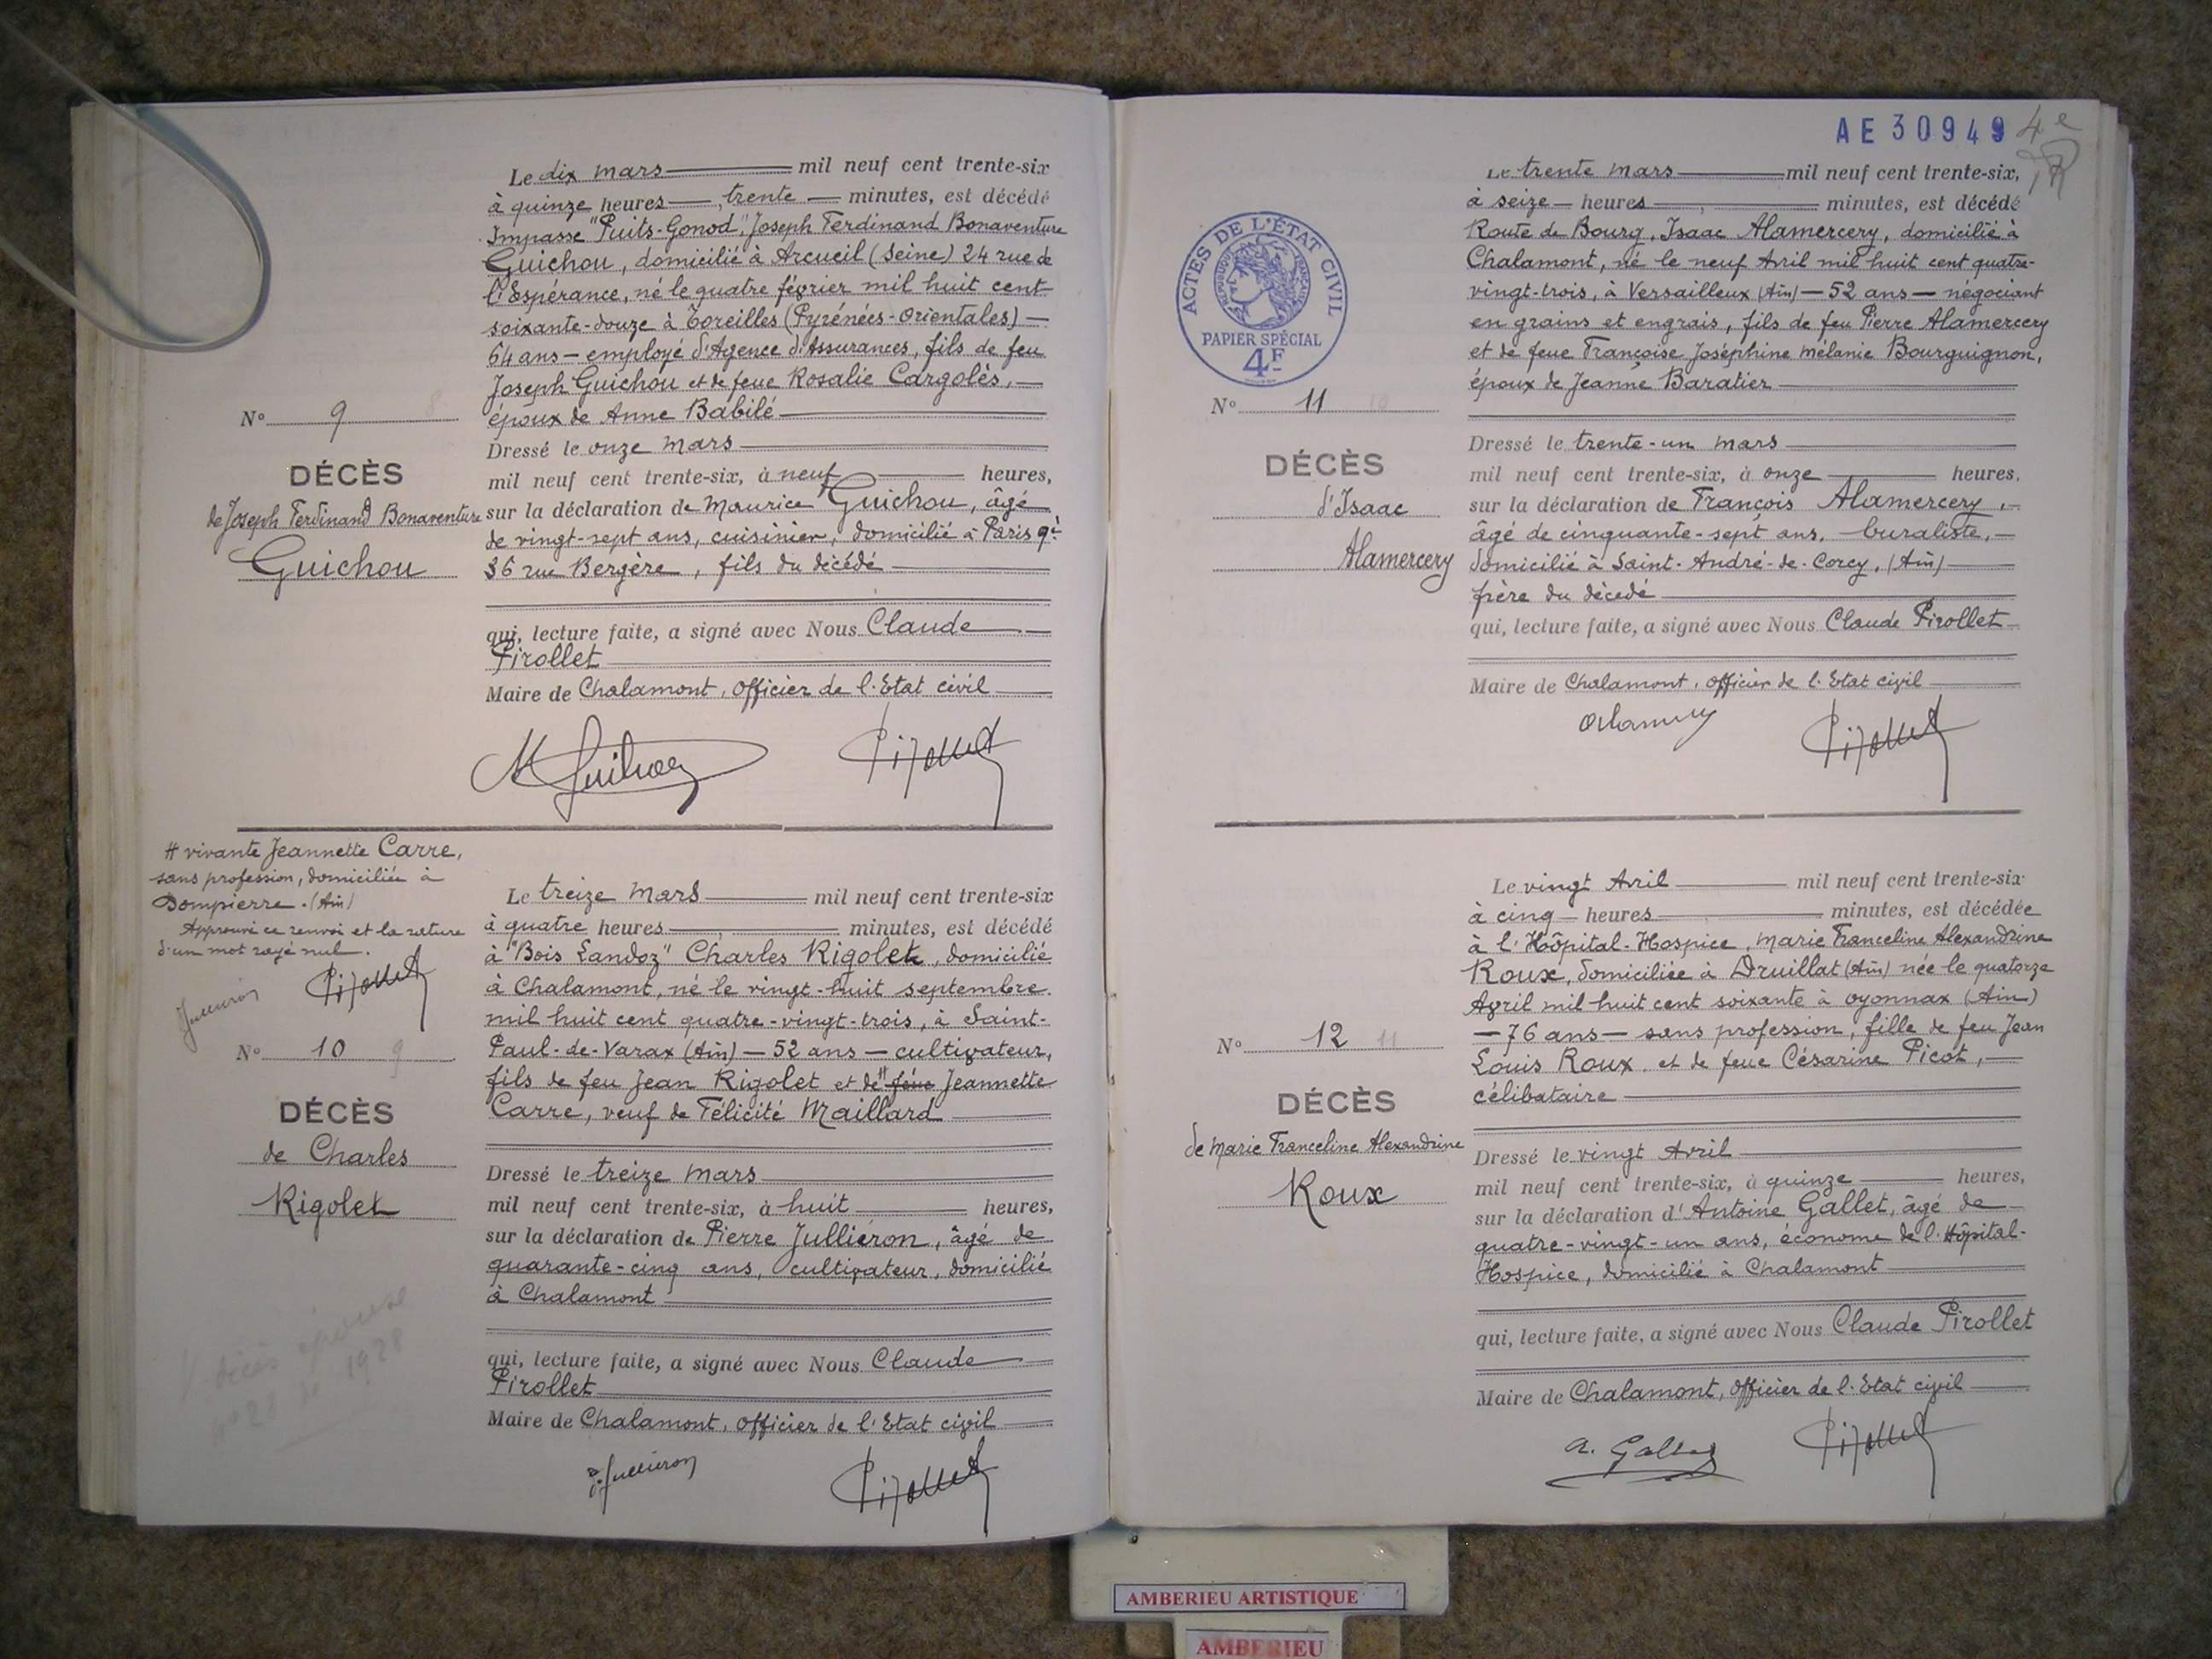 Le dix mars mil neuf cent trente-six
à quinze heures, trente minutes, est décédé
Impasse "Puits-Gonod", Joseph Ferdinand Bonaventure
Guichou, domicilié à Arcueil (Seine) 24 rue de
l'Espérance, né le quatre février mil huit cent
soixante-douze à Toreilles (Pyrénées-Orientales) —
64 ans — employé d'Agence d'Assurances, fils de feu
Joseph Guichou et de feue Rosalie Cargolès, —
époux de Anne Babilé
N° 9 8
DÉCÈS
de Joseph Ferdinand Bonaventure
Guichou
Dressé le onze mars
mil neuf cent trente-six, à neuf heures,
sur la déclaration de Maurice Guichou, âgé
de vingt-sept ans, cuisinier, domicilié à Paris 9è
36 rue Bergère, fils du décédé
qui, lecture faite, a signé avec Nous Claude
Pirollet
Maire de Chalamont, Officier de l'Etat civil
# vivante Jeannette Carre,
sans profession, domiciliée à
Dompierre. (Ain)
Approuvé ce renvoi et la rature
d'un mot rayé nul.
Jullieron Pirollet
N° 10 9
DÉCÈS
de Charles
Rigolet
décès épouse
1928
Le treize mars mil neuf cent trente-six
à quatre heures, minutes, est décédé
à "Bois Landoz" Charles Rigolet, domicilié
à Chalamont, né le vingt-huit septembre
mil huit cent quatre-vingt-trois, à Saint-
Paul-de-Varax (Ain) — 52 ans — cultivateur,
fils de feu Jean Rigolet et de # feue Jeannette
Carre, veuf de Félicité Maillard
Dressé le treize mars
mil neuf cent trente-six, à huit heures,
sur la déclaration de Pierre Jullieron, âgé de
quarante-cinq ans, cultivateur, domicilié
à Chalamont
qui, lecture faite, a signé avec Nous Claude
Pirollet
Maire de Chalamont, Officier de l'Etat civil
Jullieron Pirollet
AE 30949 4e
ACTES DE L'ÉTAT CIVIL
PAPIER SPÉCIAL
4F
N° 11 10
DÉCÈS
d'Isaac
Alamercery
Le trente mars mil neuf cent trente-six,
à seize heures, minutes, est décédé
Route de Bourg, Isaac Alamercery, domicilié à
Chalamont, né le neuf Avril mil huit cent quatre-
vingt-trois, à Versailleux (Ain) — 52 ans — négociant
en grains et engrais, fils de feu Pierre Alamercery
et de feue Françoise Joséphine Mélanie Bourguignon,
époux de Jeanne Baratier
Dressé le trente-un mars
mil neuf cent trente-six, à onze heures,
sur la déclaration de François Alamercery, —
âgé de cinquante-sept ans, buraliste, —
domicilié à Saint-André-de-Corcy, (Ain)
frère du décédé
qui, lecture faite, a signé avec Nous Claude Pirollet
Maire de Chalamont, Officier de l'Etat civil
Pirollet
N° 12 11
DÉCÈS
de Marie Franceline Alexandrine
Roux
Le vingt Avril mil neuf cent trente-six
à cinq heures minutes, est décédée
à l'Hôpital-Hospice, Marie Franceline Alexandrine
Roux, domiciliée à Druillat (Ain) née le quatorze
Avril mil huit cent soixante à Oyonnax (Ain)
— 76 ans — sans profession, fille de feu Jean
Louis Roux et de feue Césarine Picot, —
célibataire
Dressé le vingt Avril
mil neuf cent trente-six, à quinze heures,
sur la déclaration d'Antoine Gallet, âgé de
quatre-vingt-un ans, économe de l'Hôpital-
Hospice, domicilié à Chalamont
qui, lecture faite, a signé avec Nous Claude Pirollet
Maire de Chalamont, Officier de l'Etat civil
A. Gallet Pirollet
AMBERIEU ARTISTIQUE
AMBERIEU